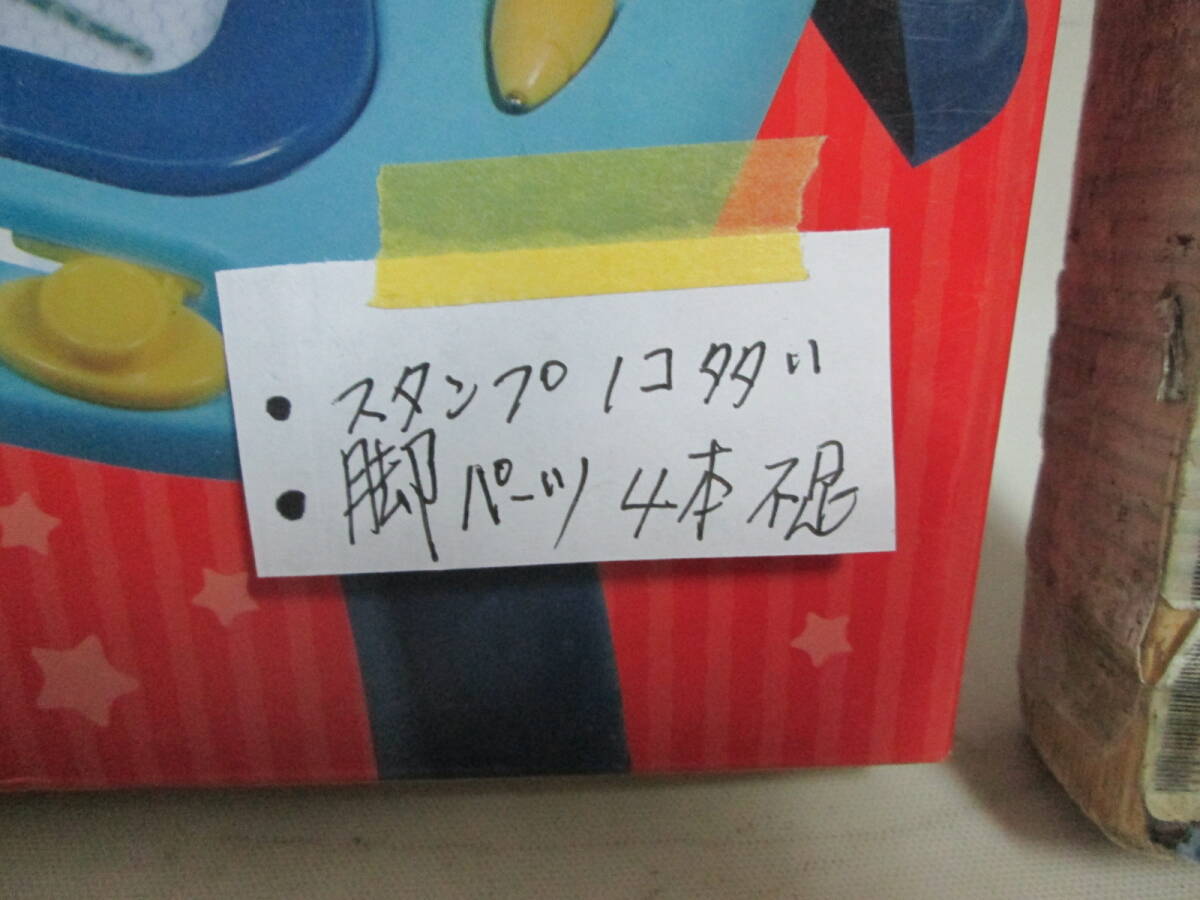 ・スタンプ1コ多い
・脚パーツ4本不足